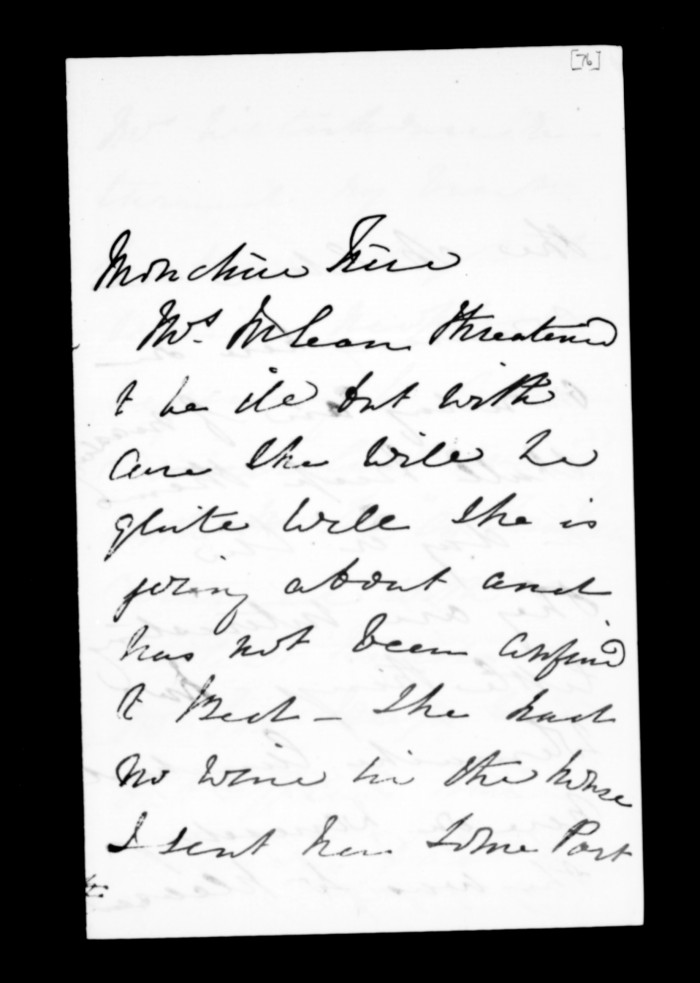 [76]
Mon chère Frère
Mrs. McLean threatened
t be ill but with
care She will be
quite well She is
going about and
has not been Confined
t Bed - She had
no wine in the house
I sent her Some Port